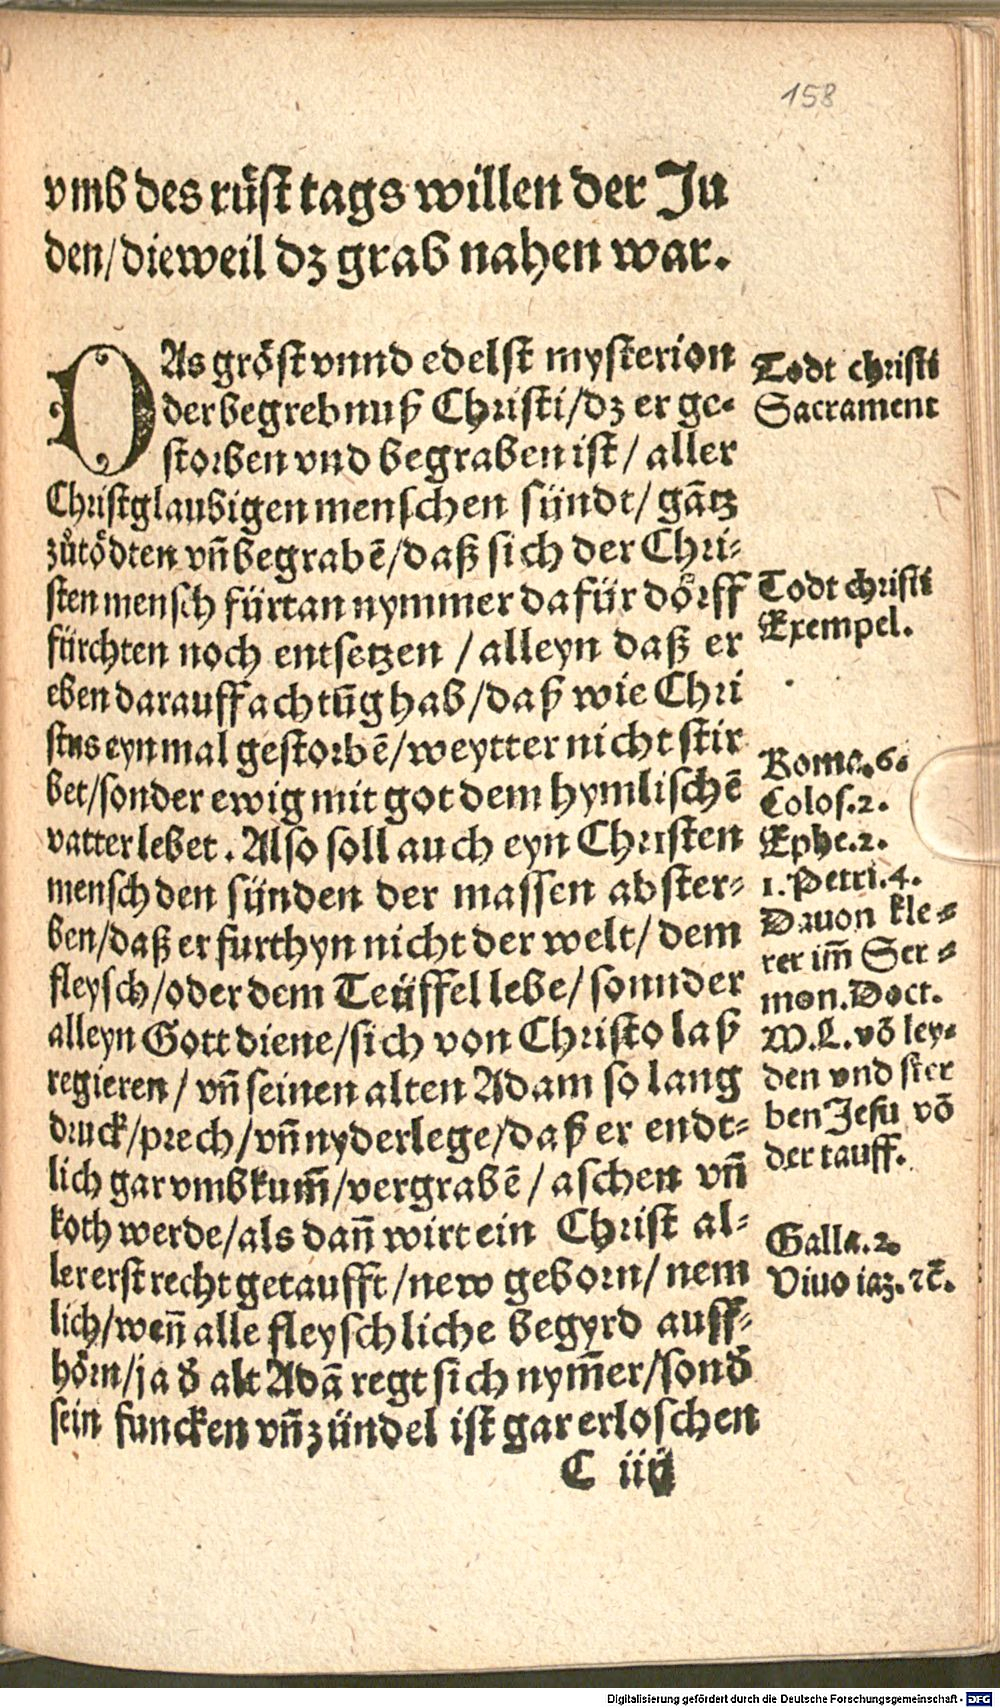 158
vmb des rüst tags willen der Ju
den/dieweil dz grab nahen war.
DAs gröst vnnd edelst mysterion
der begrebnuß Christi/dz er ge-
storben vnd begraben ist/ aller
Christglaubigen menschen sündt/ gātz
zůtödten vñ begrabē/daß sich der Chri-
sten mensch fürtan nymmer dafür dörff
fürchten noch entsetzen /alleyn daß er
eben darauff achtūg hab/daß wie Chri
stus eyn mal gestorbē/weytter nicht stir
bet/sonder ewig mit got dem hymlischē
vatter lebet. Also soll auch eyn Christen
mensch den sünden der massen abster-
ben/daß er furthyn nicht der welt/ dem
fleysch/oder dem Teüffel lebe/ sonnder
alleyn Gott diene/sich von Christo laß
regieren/ vñ seinen alten Adam so lang
druck/prech/vñ nyderlege/daß er endt-
lich gar vmbkum̄/vergrabē/ aschen vñ
koth werde/als dañ wirt ein Christ al-
ler erst recht getaufft/new geborn/ nem
lich/weñ alle fleyschliche begyrd auff-
hörn/ja d̄ alt Adā regt sich nym̄er/sond̄
sein funcken vñ zündel ist gar erloschen
C iiij
Todt christi
Sacrament
Todt christi
Exempel.
Roma.6.
Colos.2.
Ephe.2.
1.Petri.4.
Dauon kle-
rer im̄ Ser-
mon.Doct.
M.L.vō ley-
den vnd ster
ben Jesu vō
der tauff.
Galla.2.
Viuo iaz.⁊c̄.
Digitalisierung gefördert durch die Deutsche Forschungsgemeinschaft - DFG